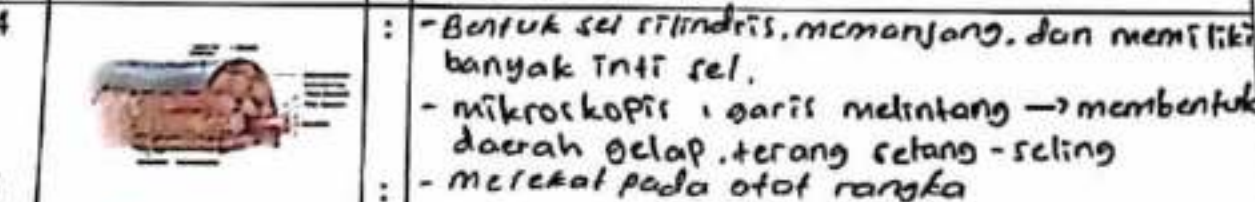 4
: - Bentuk sel silindris, memanjang, dan memiliki
banyak inti sel.
- mikroskopis : garis melintang → membentuk
daerah gelap, terang selang-seling
: - melekat pada otot rangka